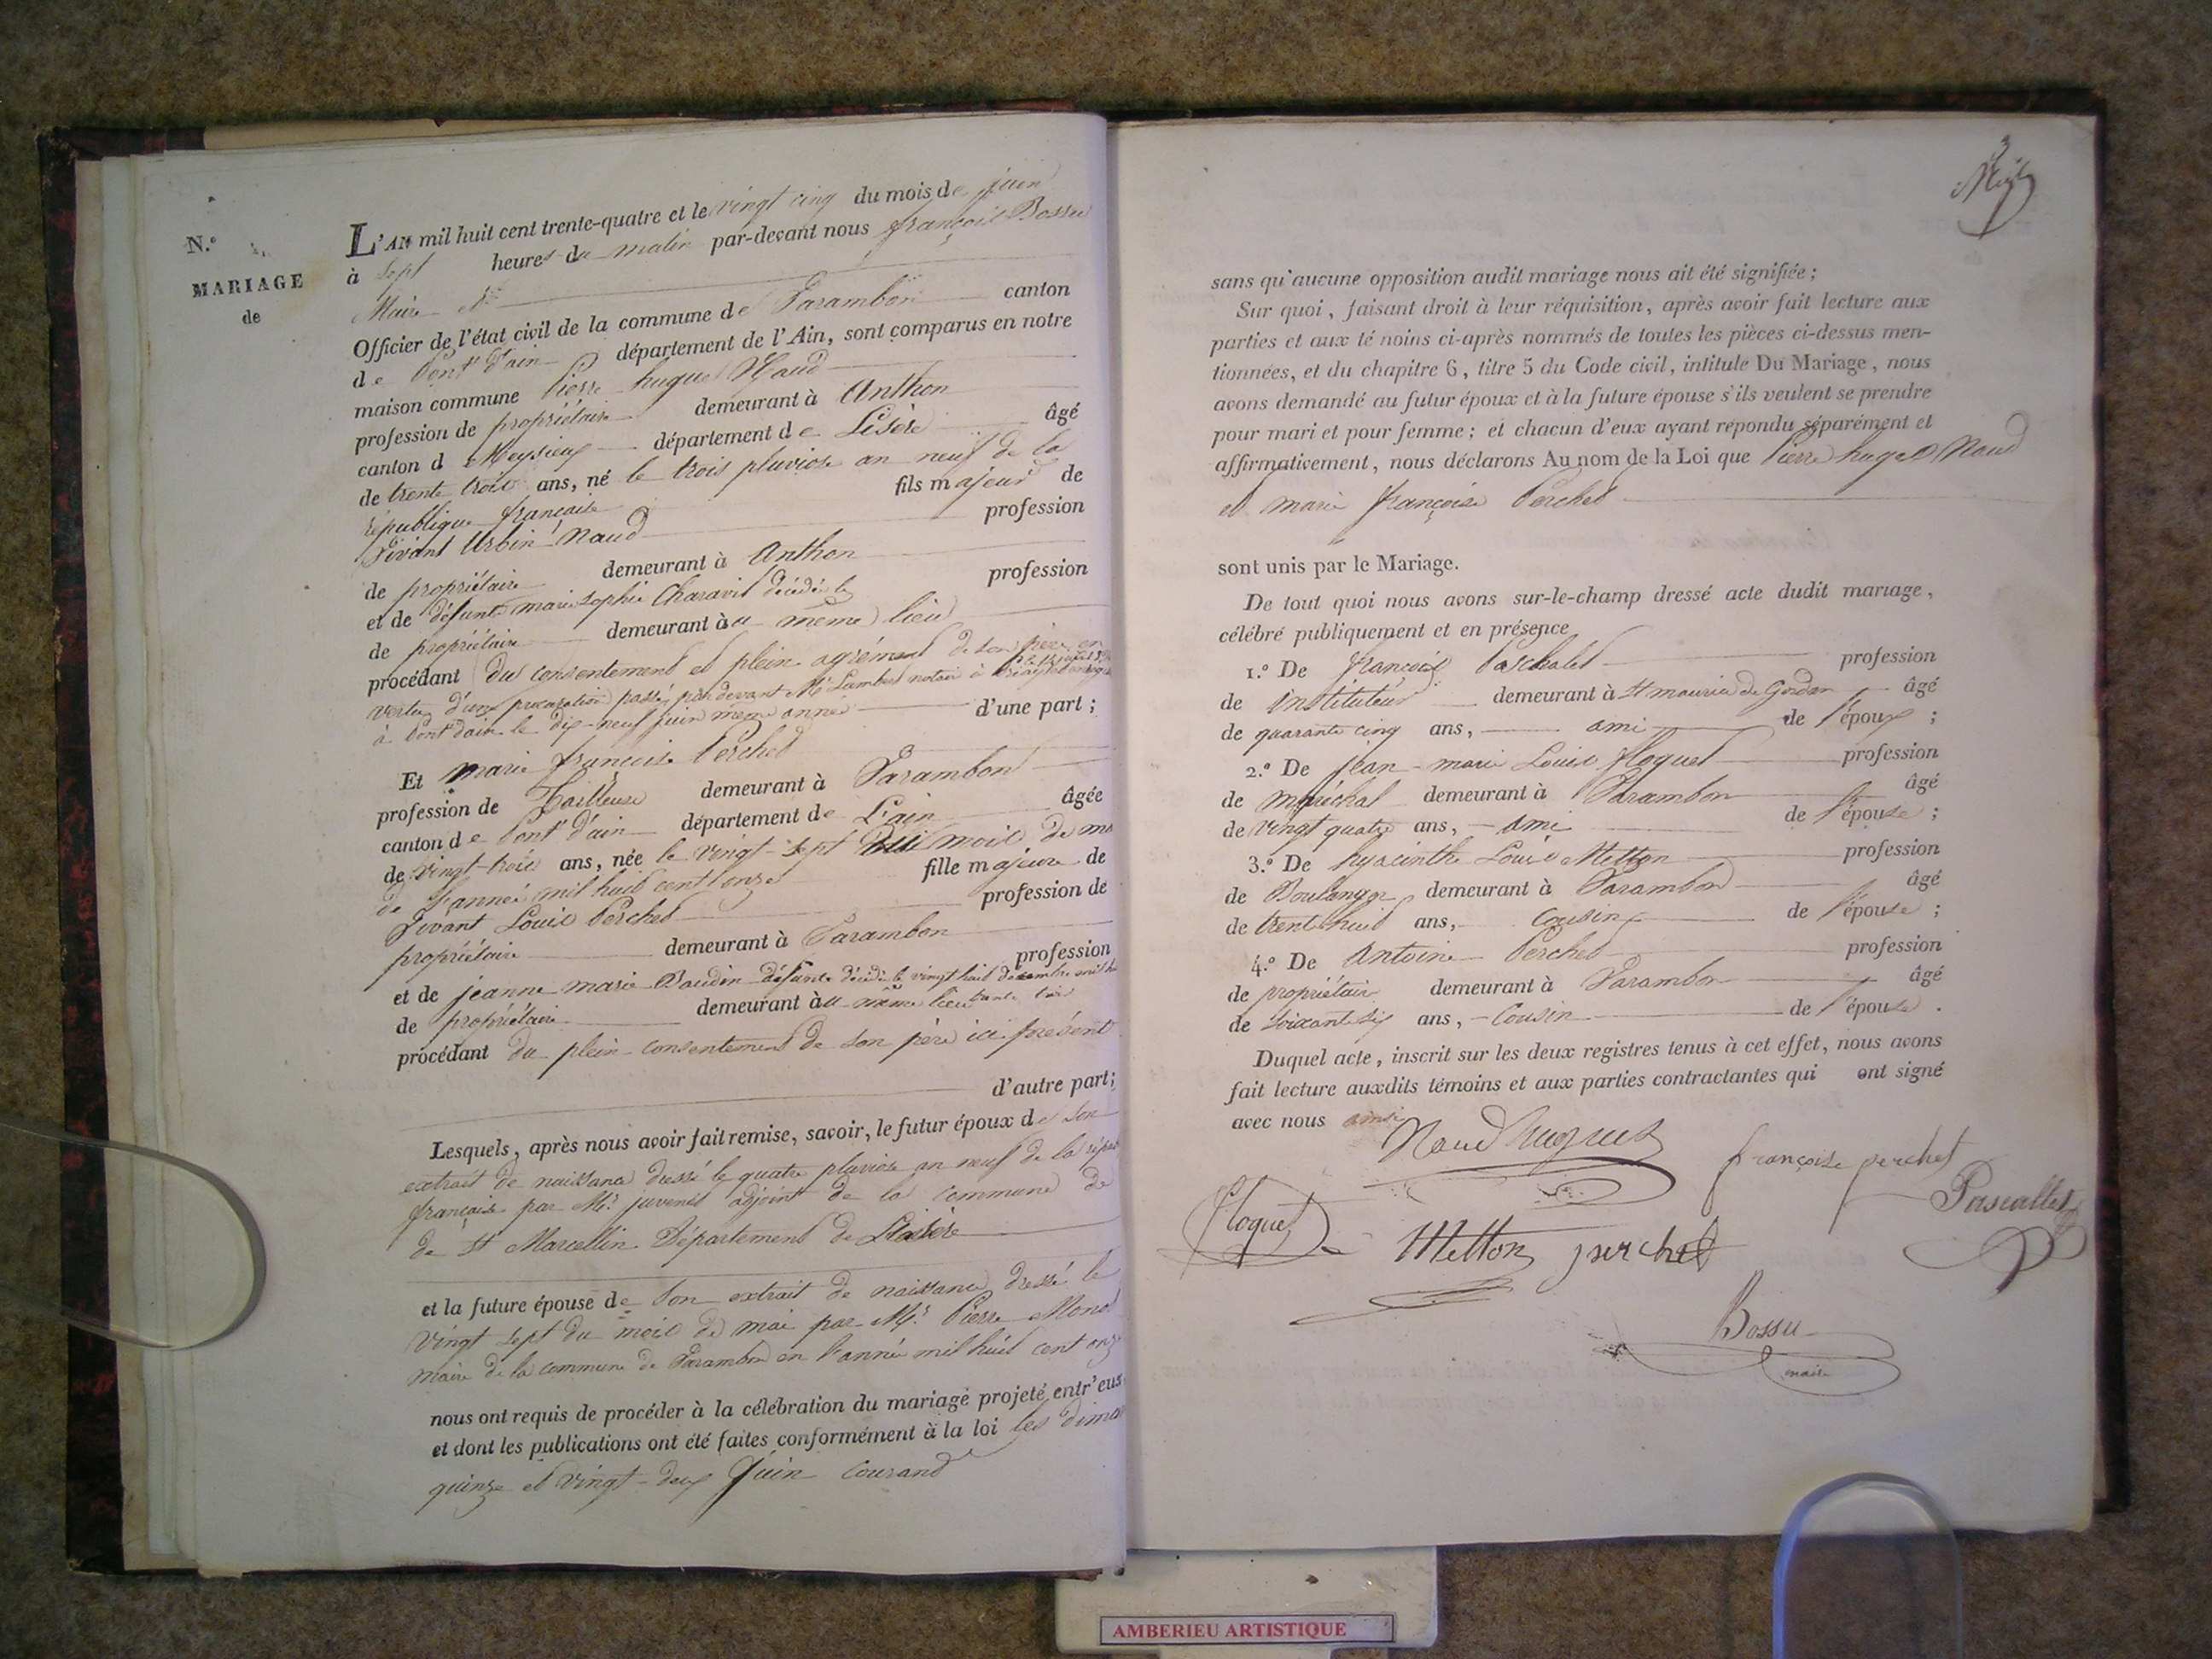 N.º
MARIAGE
de
L'AN mil huit cent trente-quatre et le vingt cinq du mois de juin
à sept heures du matin par-devant nous françois Bossu
Maire
Officier de l'état civil de la commune de Varambon canton
de Pont d'ain département de l'Ain, sont comparus en notre
maison commune Pierre hugues Naud
profession de propriétaire demeurant à Anthon
canton d Meysieux département de Lisère âgé
de trente trois ans, né le trois pluviose an neuf de la
république française fils majeur de
vivant Urbin Naud profession
de propriétaire demeurant à Anthon
et de défunte marie sophie Charavit décédée le profession
de propriétaire demeurant au même lieu
procédant du consentement et plein agrément de son père en
vertu d'une procuration passée par devant Mr Lambert notaire à
à Pont dain le dix-neuf juin même année d'une part ;
Et marie françoise Perchet
profession de Tailleuse demeurant à Varambon
canton de Pont d'ain département de L'ain âgée
de vingt-trois ans, née le vingt-sept mois de ma
de l'année mil huit cent onze fille majeure de
vivant Louis Perchet profession de
propriétaire demeurant à Varambon
et de jeanne marie Baudin défunte décédée le vingt huit décembre mil profession
de propriétaire demeurant au même lieu
procédant du plein consentement de son père ici présent
d'autre part ;
Lesquels, après nous avoir fait remise, savoir, le futur époux de son
extrait de naissance dressé le quatre pluviose an neuf de la répub
française par Mr. juvenet adjoint de la commune de
de St Marcellin Département de L'isère
et la future épouse de son extrait de naissance dressé le
vingt sept du mois de mai par Mr. Pierre Monod
maire de la commune de Varambon en l'année mil huit cent onze
nous ont requis de procéder à la célébration du mariage projeté entr'eux
et dont les publications ont été faites conformément à la loi les dima
quinze et vingt-deux juin courand
3
sans qu'aucune opposition audit mariage nous ait été signifiée ;
Sur quoi, faisant droit à leur réquisition, après avoir fait lecture aux
parties et aux té noins ci-après nommés de toutes les pièces ci-dessus men-
tionnées, et du chapitre 6, titre 5 du Code civil, intitule Du Mariage, nous
avons demandé au futur époux et à la future épouse s'ils veulent se prendre
pour mari et pour femme ; et chacun d'eux ayant répondu séparément et
affirmativement, nous déclarons Au nom de la Loi que Pierre hugues Naud
et marie françoise Perchet
sont unis par le Mariage.
De tout quoi nous avons sur-le-champ dressé acte dudit mariage,
célébré publiquement et en présence
1.º De françois Paschalet profession
de instituteur demeurant à St maurice de Gordan âgé
de quarante cinq ans, ami de l'époux ;
2.º De jean-marie Louis floquet profession
de maréchal demeurant à Varambon âgé
de vingt quatre ans, ami de l'épouse ;
3.º De hyacinthe Louis Metton profession
de Boulanger demeurant à Varambon âgé
de trente huit ans, cousin de l'épouse ;
4.º De Antoine Perchet profession
de propriétaire demeurant à Varambon âgé
de soixante six ans, Cousin de l'épouse.
Duquel acte, inscrit sur les deux registres tenus à cet effet, nous avons
fait lecture auxdits témoins et aux parties contractantes qui ont signé
avec nous
Naud hugues
françoise perchet
floquet
Metton
perchet
Pascallet
Bossu
maire
AMBERIEU ARTISTIQUE